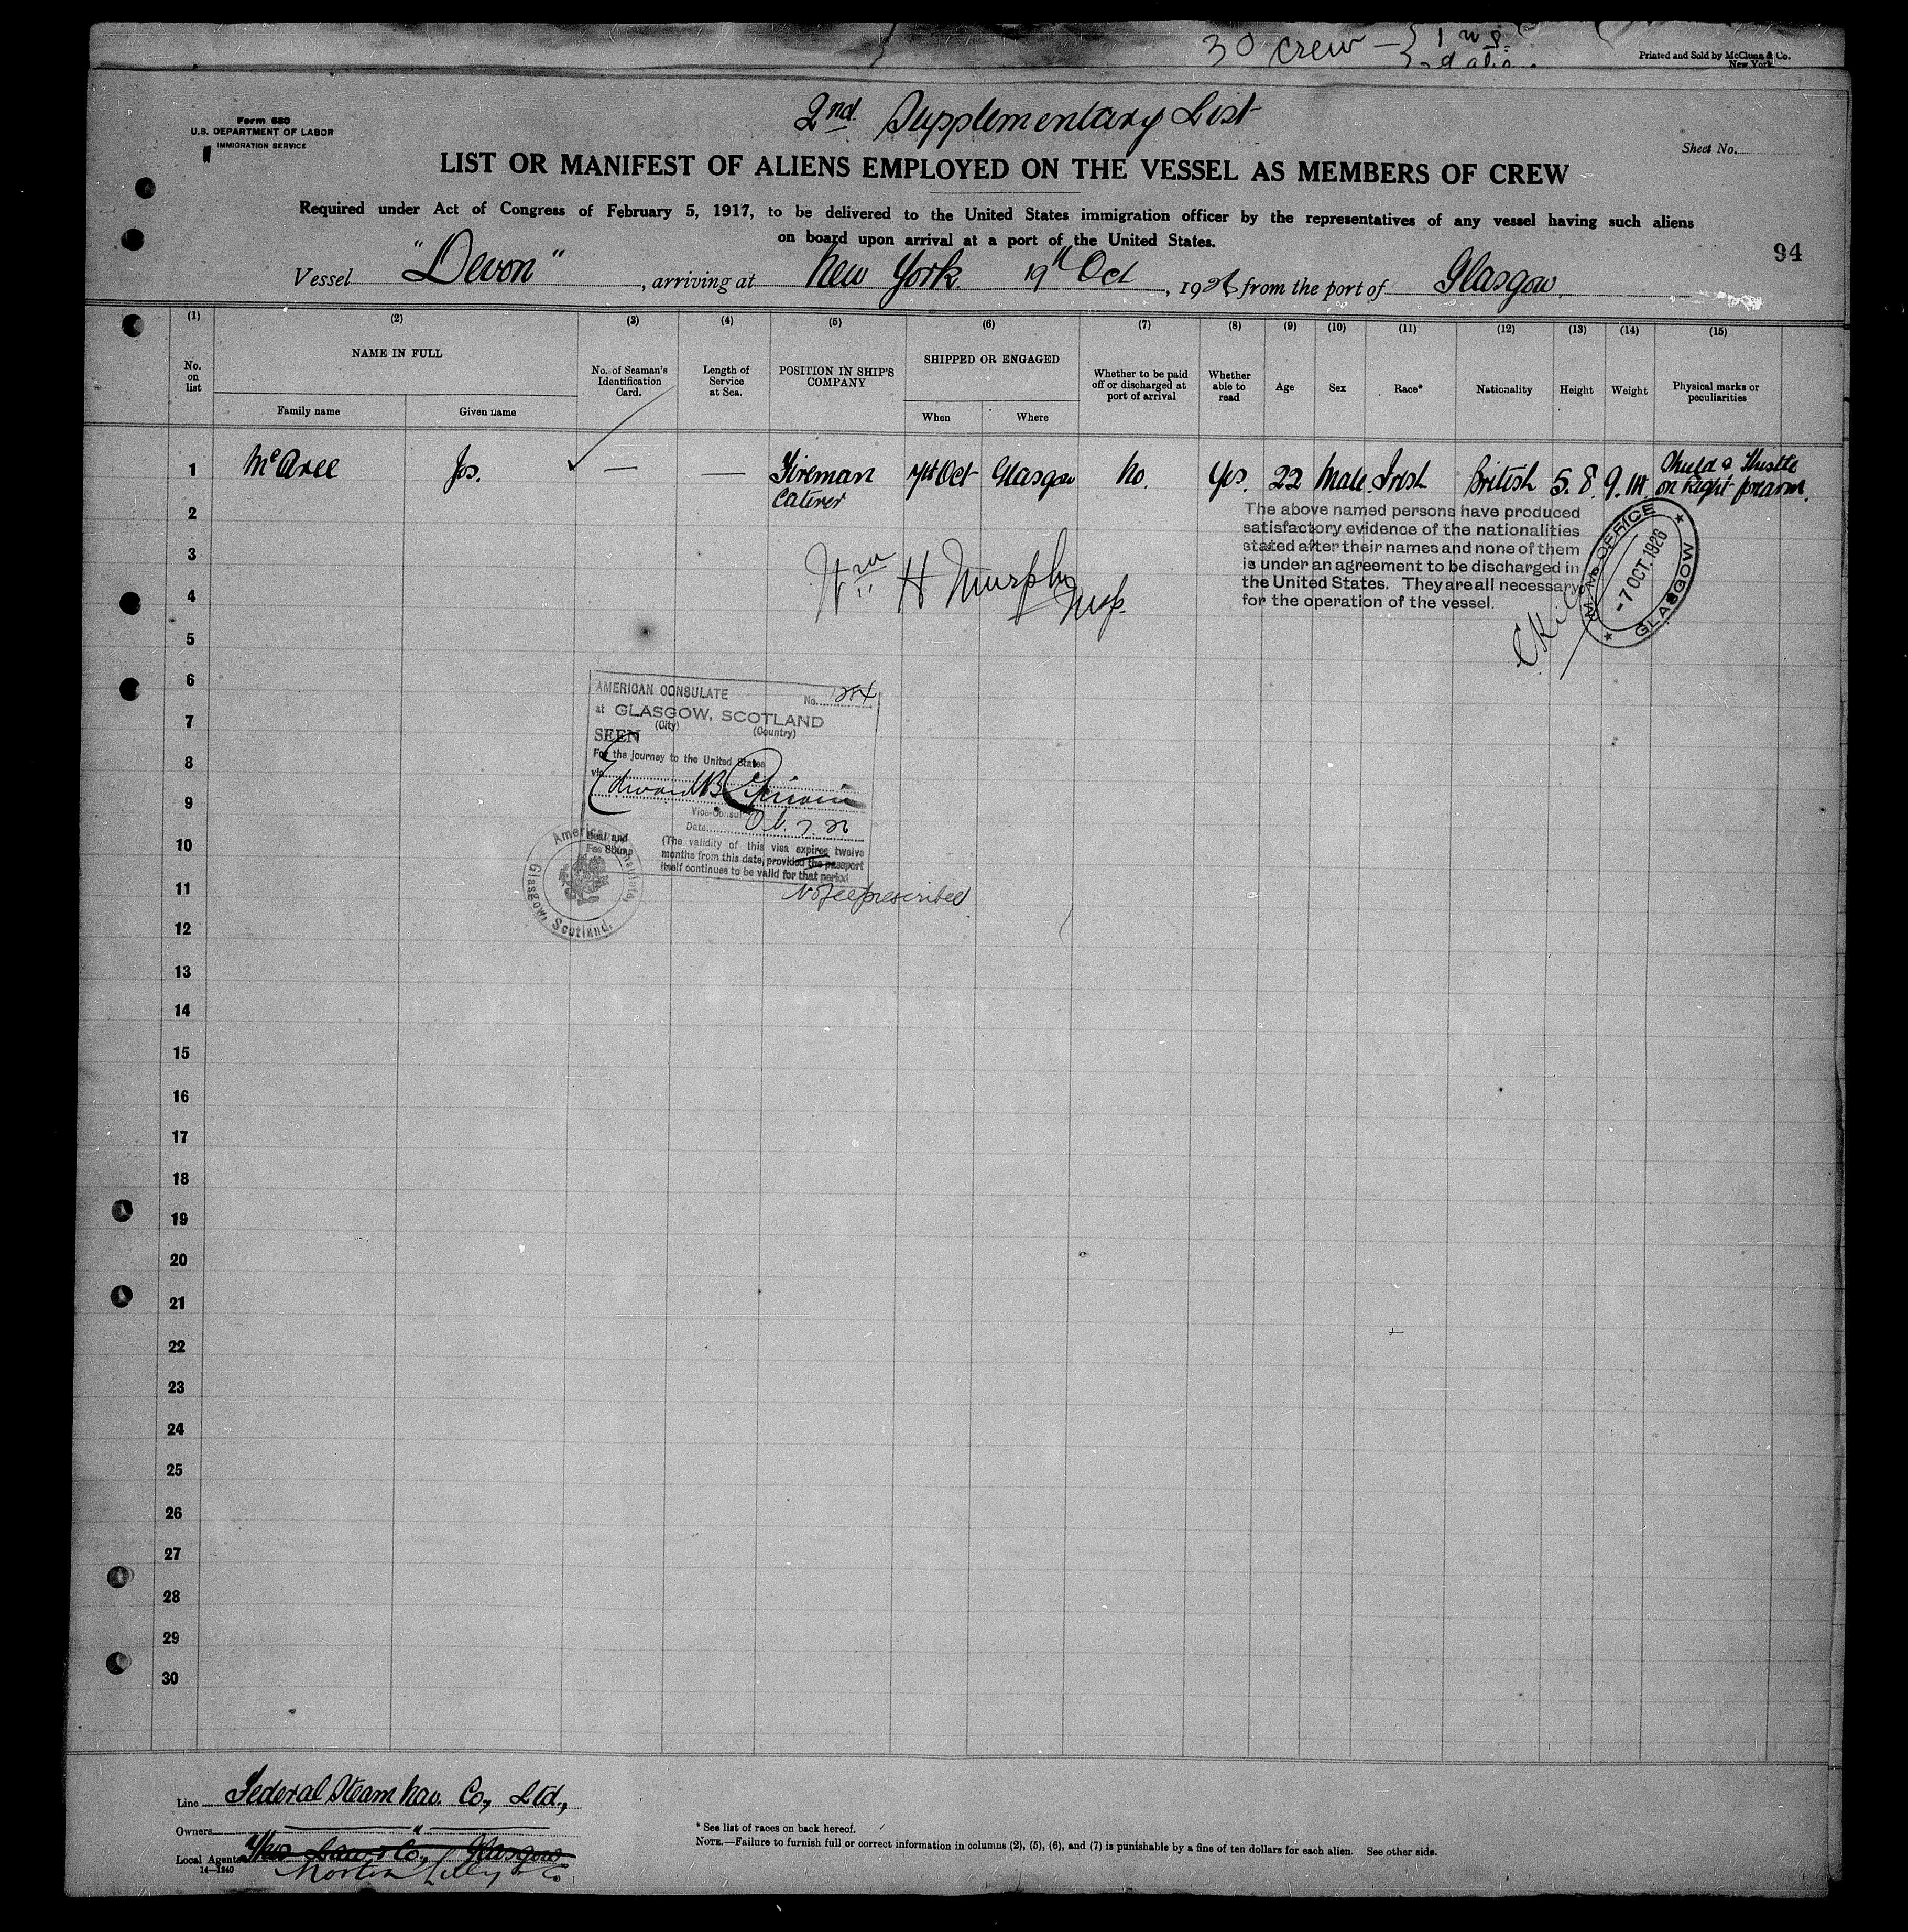 30 crew
Printed and Sold by McClunn & Co.
New York
2nd. Supplementary List
Form 680
U.S. DEPARTMENT OF LABOR
IMMIGRATION SERVICE
Sheet No.
LIST OR MANIFEST OF ALIENS EMPLOYED ON THE VESSEL AS MEMBERS OF CREW
Required under Act of Congress of February 5, 1917, to be delivered to the United States immigration officer by the representatives of any vessel having such aliens
on board upon arrival at a port of the United States.
94
Vessel "Devon", arriving at New York. 19th Oct, 1926 from the port of Glasgow.
(1) (2) (3) (4) (5) (6) (7) (8) (9) (10) (11) (12) (13) (14) (15)
No. on list
NAME IN FULL
Family name
Given name
No. of Seaman's Identification Card.
Length of Service at Sea.
POSITION IN SHIP'S COMPANY
SHIPPED OR ENGAGED
When
Where
Whether to be paid off or discharged at port of arrival
Whether able to read
Age
Sex
Race*
Nationality
Height
Weight
Physical marks or peculiarities
1 McAree Jos. — — Fireman 7th Oct Glasgow No. Yes. 22 Male. Irish British 5. 8. 9. Thistle
caterer on Right forearm.
2
3
4
5
6
7
8
9
10
11
12
13
14
15
16
17
18
19
20
21
22
23
24
25
26
27
28
29
30
The above named persons have produced
satisfactory evidence of the nationalities
stated after their names and none of them
is under an agreement to be discharged in
the United States. They are all necessary
for the operation of the vessel.
M.M. OFFICE
-7 OCT. 1926
GLASGOW
Wm H Murphy
Insp.
AMERICAN CONSULATE No. 284
at GLASGOW, SCOTLAND
(City) (Country)
SEEN
For the journey to the United States
via
Edward B.
Vice-Consul
Date Oct. 7. 26
(The validity of this visa expires twelve
months from this date, provided the passport
itself continues to be valid for that period
Seal and
Fee Stamp
American Consulate, Glasgow, Scotland.
No fee prescribed
Line Federal Steam Nav. Co., Ltd.,
Owners "
Local Agents Thos Law & Co., Glasgow
Norton Lilly & Co.
14—1240
* See list of races on back hereof.
NOTE.—Failure to furnish full or correct information in columns (2), (5), (6), and (7) is punishable by a fine of ten dollars for each alien. See other side.